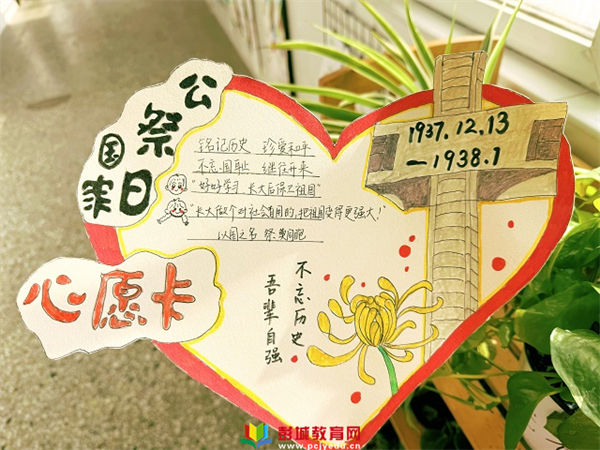 国家
公祭日
心愿卡
铭记历史 珍爱和平
不忘国耻 继往开来
"好好学习 长大后保卫祖国"
"长大做个对社会有用的,把祖国变得更强大!"
以国之名 祭奠同胞
1937.12.13
-1938.1
不忘历史
吾辈自强
彭城教育网
www.pcjyedu.cn